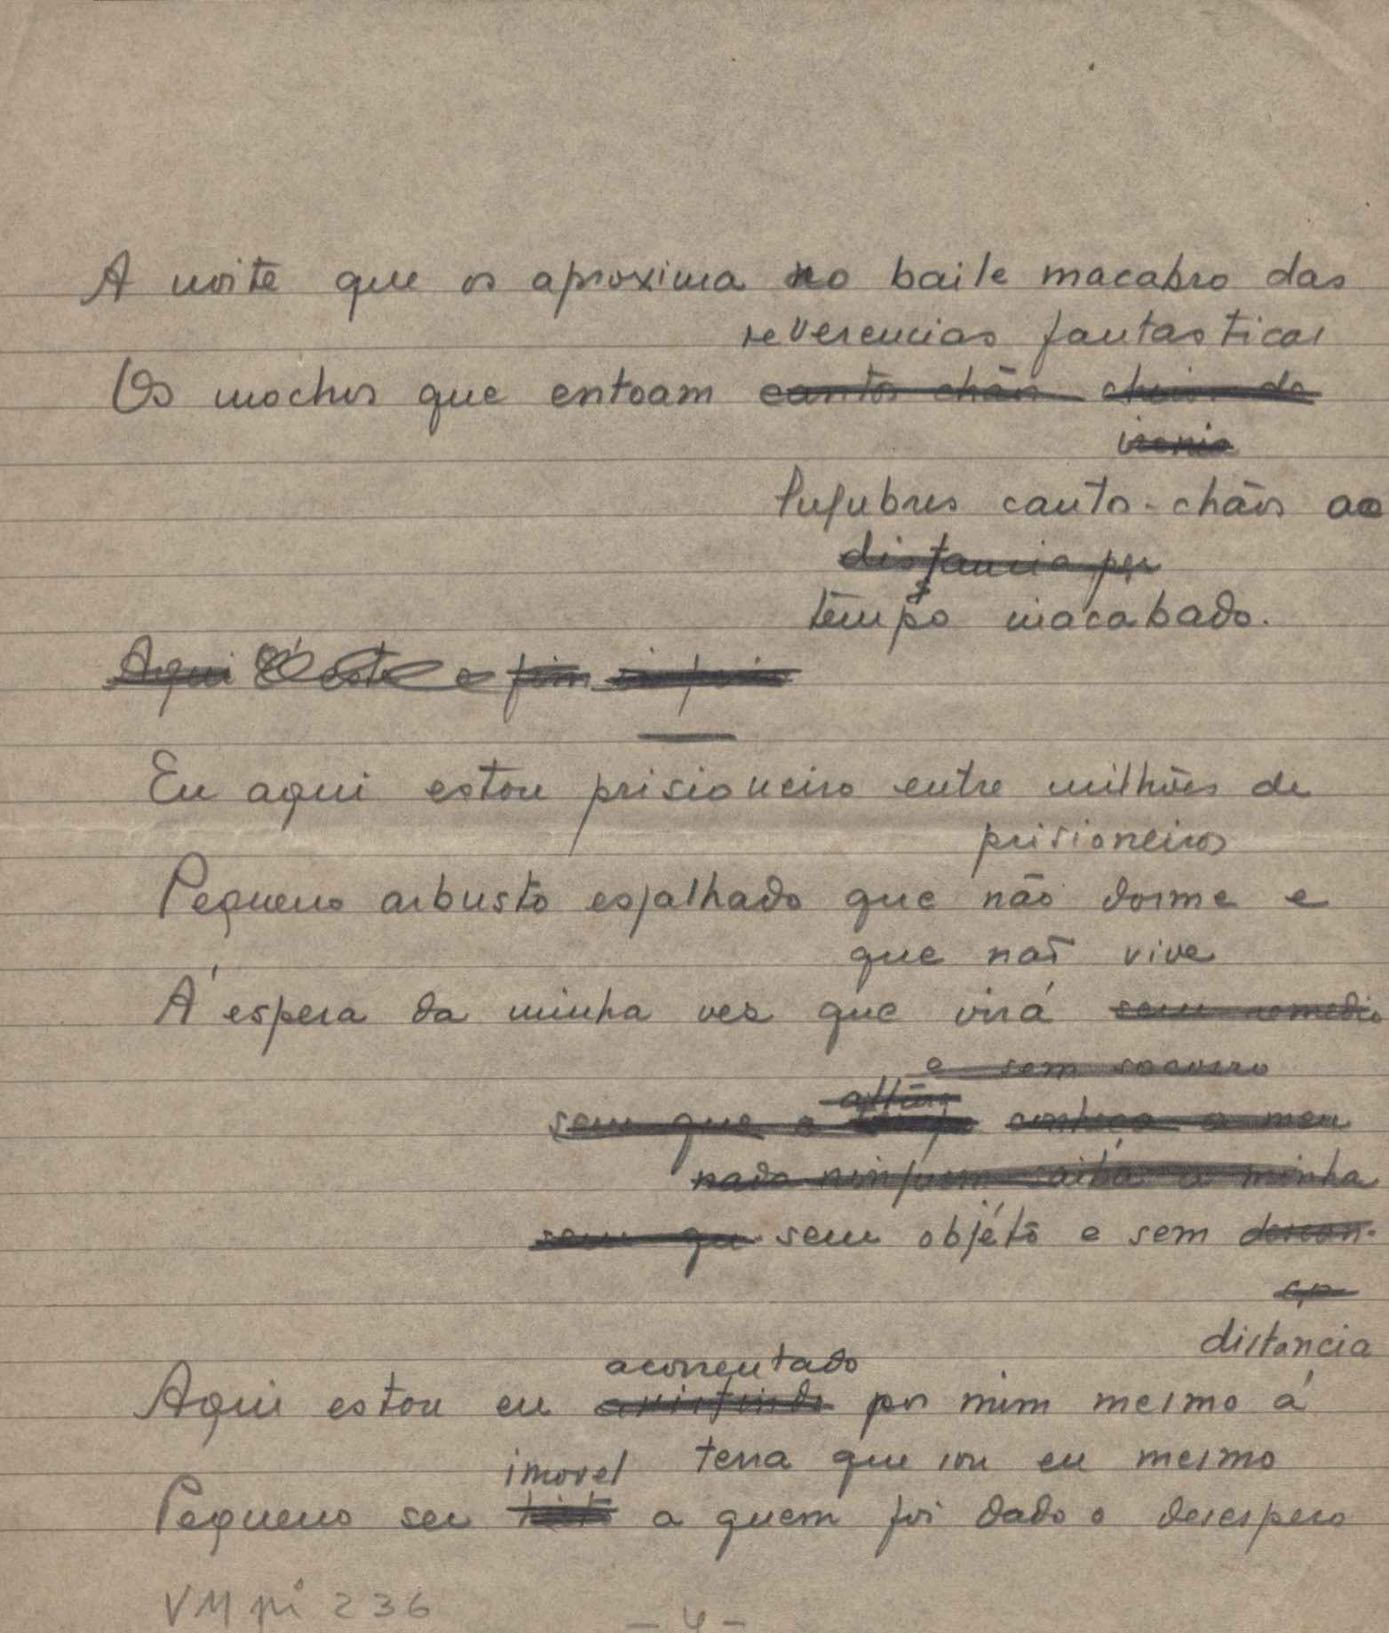 A noite que os aproxima no baile macabro das
reverencias fantasticas
Os mochos que entoam cantos chãos cheios de
ironia
lugubres cantos-chãos ao
distancia por
tempo inacabado.
Aqui está o fim
Eu aqui estou prisioneiro entre milhões de
prisioneiros
Pequeno arbusto espalhado que não dorme e
que não vive
Á espera da minha vez que virá sem remedio
e sem socorro
sem que o conheça o meu
nada ninguem saiba a minha
sem que sem objéto e sem descan-
ço
distancia
acorrentado
Aqui estou eu por mim mesmo á
terra que sou eu mesmo
imovel
Pequeno ser a quem foi dado o desespero
VM pi 236
- 4 -